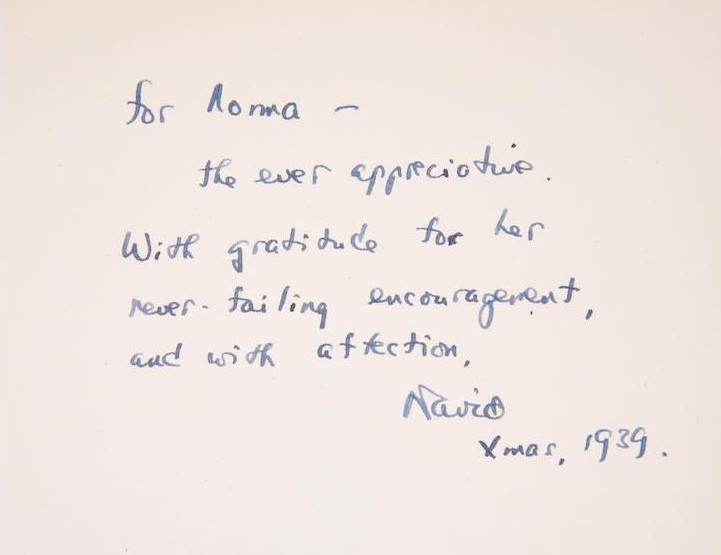 for Norma –
the ever appreciative.
With gratitude for her
never-failing encouragement,
and with affection,
David
Xmas, 1939.